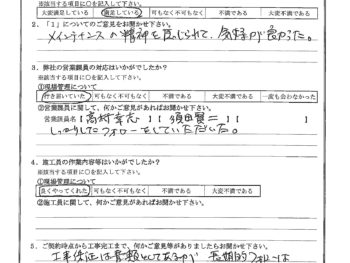 ※該当する項目に○を記入して下さい。
大変満足している 満足している 可もなく不可もなく 不満である 大変不満である
2.「1」についてのご意見をお聞かせ下さい。
メインテナンスの精神を感じられて、気持が良かった。
3．弊社の営業課員の対応はいかがでしたか?
※該当する項目に○を記入して下さい。
①現場管理について
行き届いていた 可もなく不可もなく 不満である 大変不満である 一度も会わなかった
②営業課員に関して、何かご意見があればお聞かせ下さい。
営業課員名【高村幸志】【須田賢二】
しっかりしたフォローをしていただいた。
4．施工員の作業内容等はいかがでしたか?
※該当する項目に○を記入して下さい。
①現場管理について
良くやってくれた 可もなく不可もなく 不満である 大変不満である
②施工員に関して、何かご意見があればお聞かせ下さい。
5．ご契約時点から工事完了まで、何かご意見等がありましたらお聞かせ下さい。
工事保証は書類としてあるが 長期的フォローは